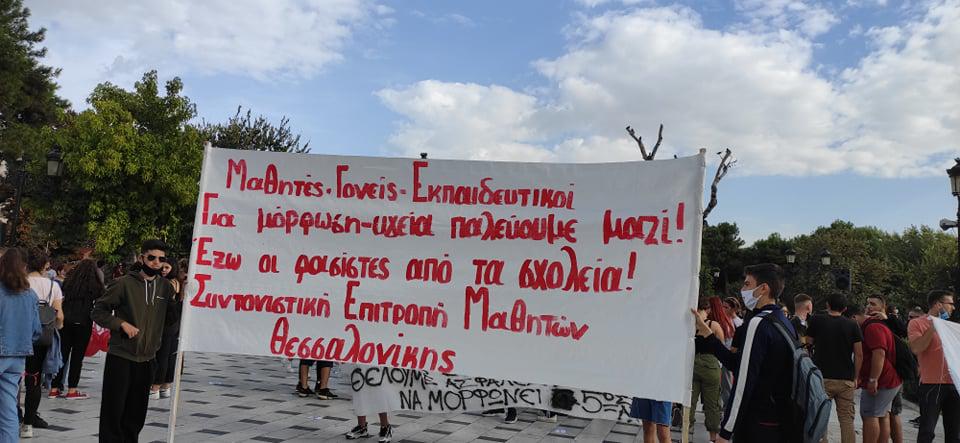 Μαθητές - Γονείς - Εκπαιδευτικοί
Για μόρφωση - υγεία παλεύουμε μαζί!
Έξω οι φασίστες από τα σχολεία!
Συντονιστική Επιτροπή Μαθητών
Θεσσαλονίκης
ΘΕΛΟΥΜΕ
ΝΑ ΜΟΡΦΩΝΕΙ